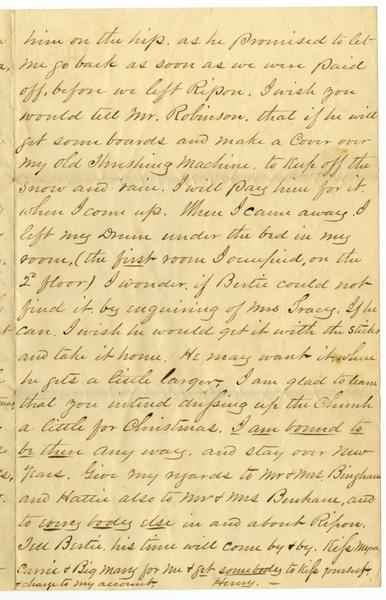 him on the hip, as he promised to let
me go back as soon as we were paid
off, before we left Ripon. I wish you
would tell Mr. Robinson, that if he will
get some boards and make a cover over
my old Threshing Machine, to keep off the
snow and rain. I will pay him for it.
when I come up. When I came away, I
left my Drum under the bed in my
room, (the first room I occupied, on the
2d floor) I wonder, if Bertie could not
find it by enquiring of Mrs. Tracy. If he
can. I wish he would get it with the sticks
and take it home. He may want it when
he gets a little larger. I am glad to learn
that you intend dressing up the Church
a little for Christmas. I am bound to
be there any way. and stay over New
Years. Give my regards to Mr & Mrs Bingham
and Hattie also to Mr & Mrs Benhan, and
to every body else in and about Ripon.
Tell Bertie, his time will come by & by. Kiss Myra
Carrie & Big Mary for me & get somebody to kiss yourself,
& charge to my account. Henry.